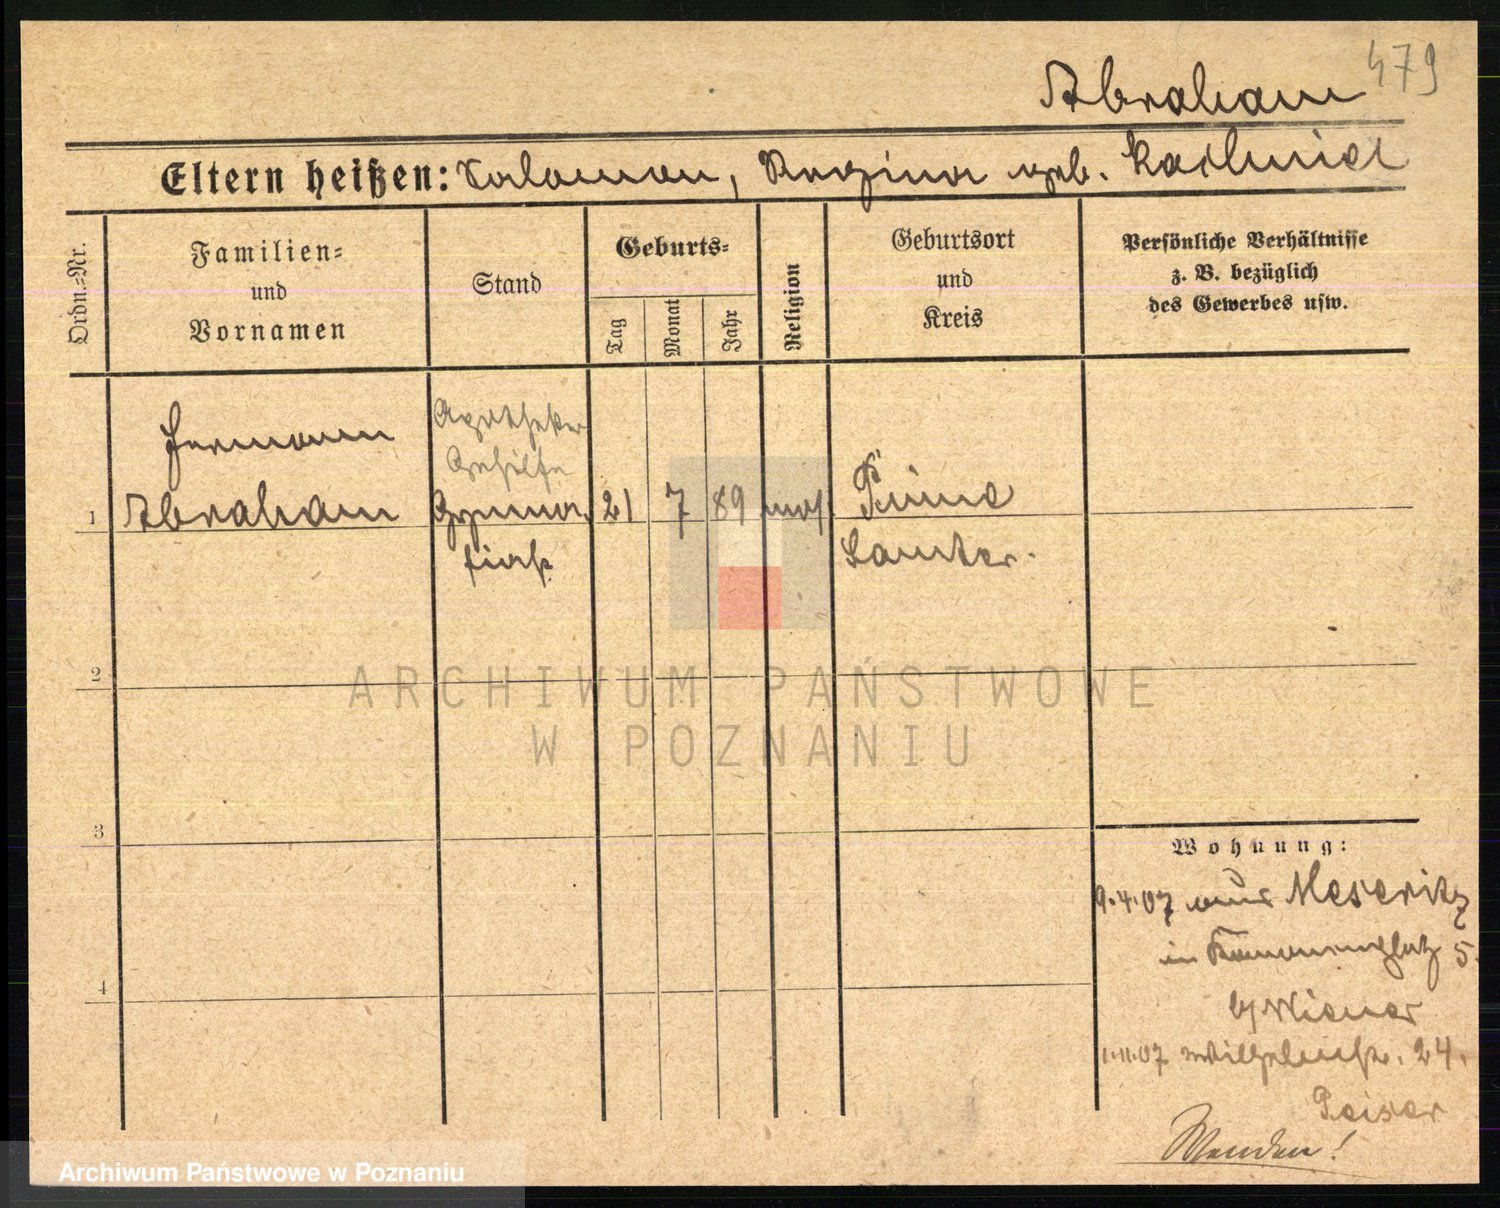 479
Abraham
Eltern heißen: Salomon, Regina geb. Kaelmiel
Ordn.=Nr.
Familien=
und
Vornamen
Stand
Geburts=
Tag
Monat
Jahr
Religion
Geburtsort
und
Kreis
Persönliche Verhältnisse
z. B. bezüglich
des Gewerbes usw.
Hermann
Abraham
Apotheker
Gehilfe
Gymna
siast
1
21
7
89
mos.
Pinne
Samter.
2
3
4
Wohnung:
9.4.07 aus Meseritz
in 5.
b/ Wiener
1.11.07 Wilhelmstr. 24.
Peiser
Wenden!
ARCHIWUM PAŃSTWOWE
W POZNANIU
Archiwum Państwowe w Poznaniu